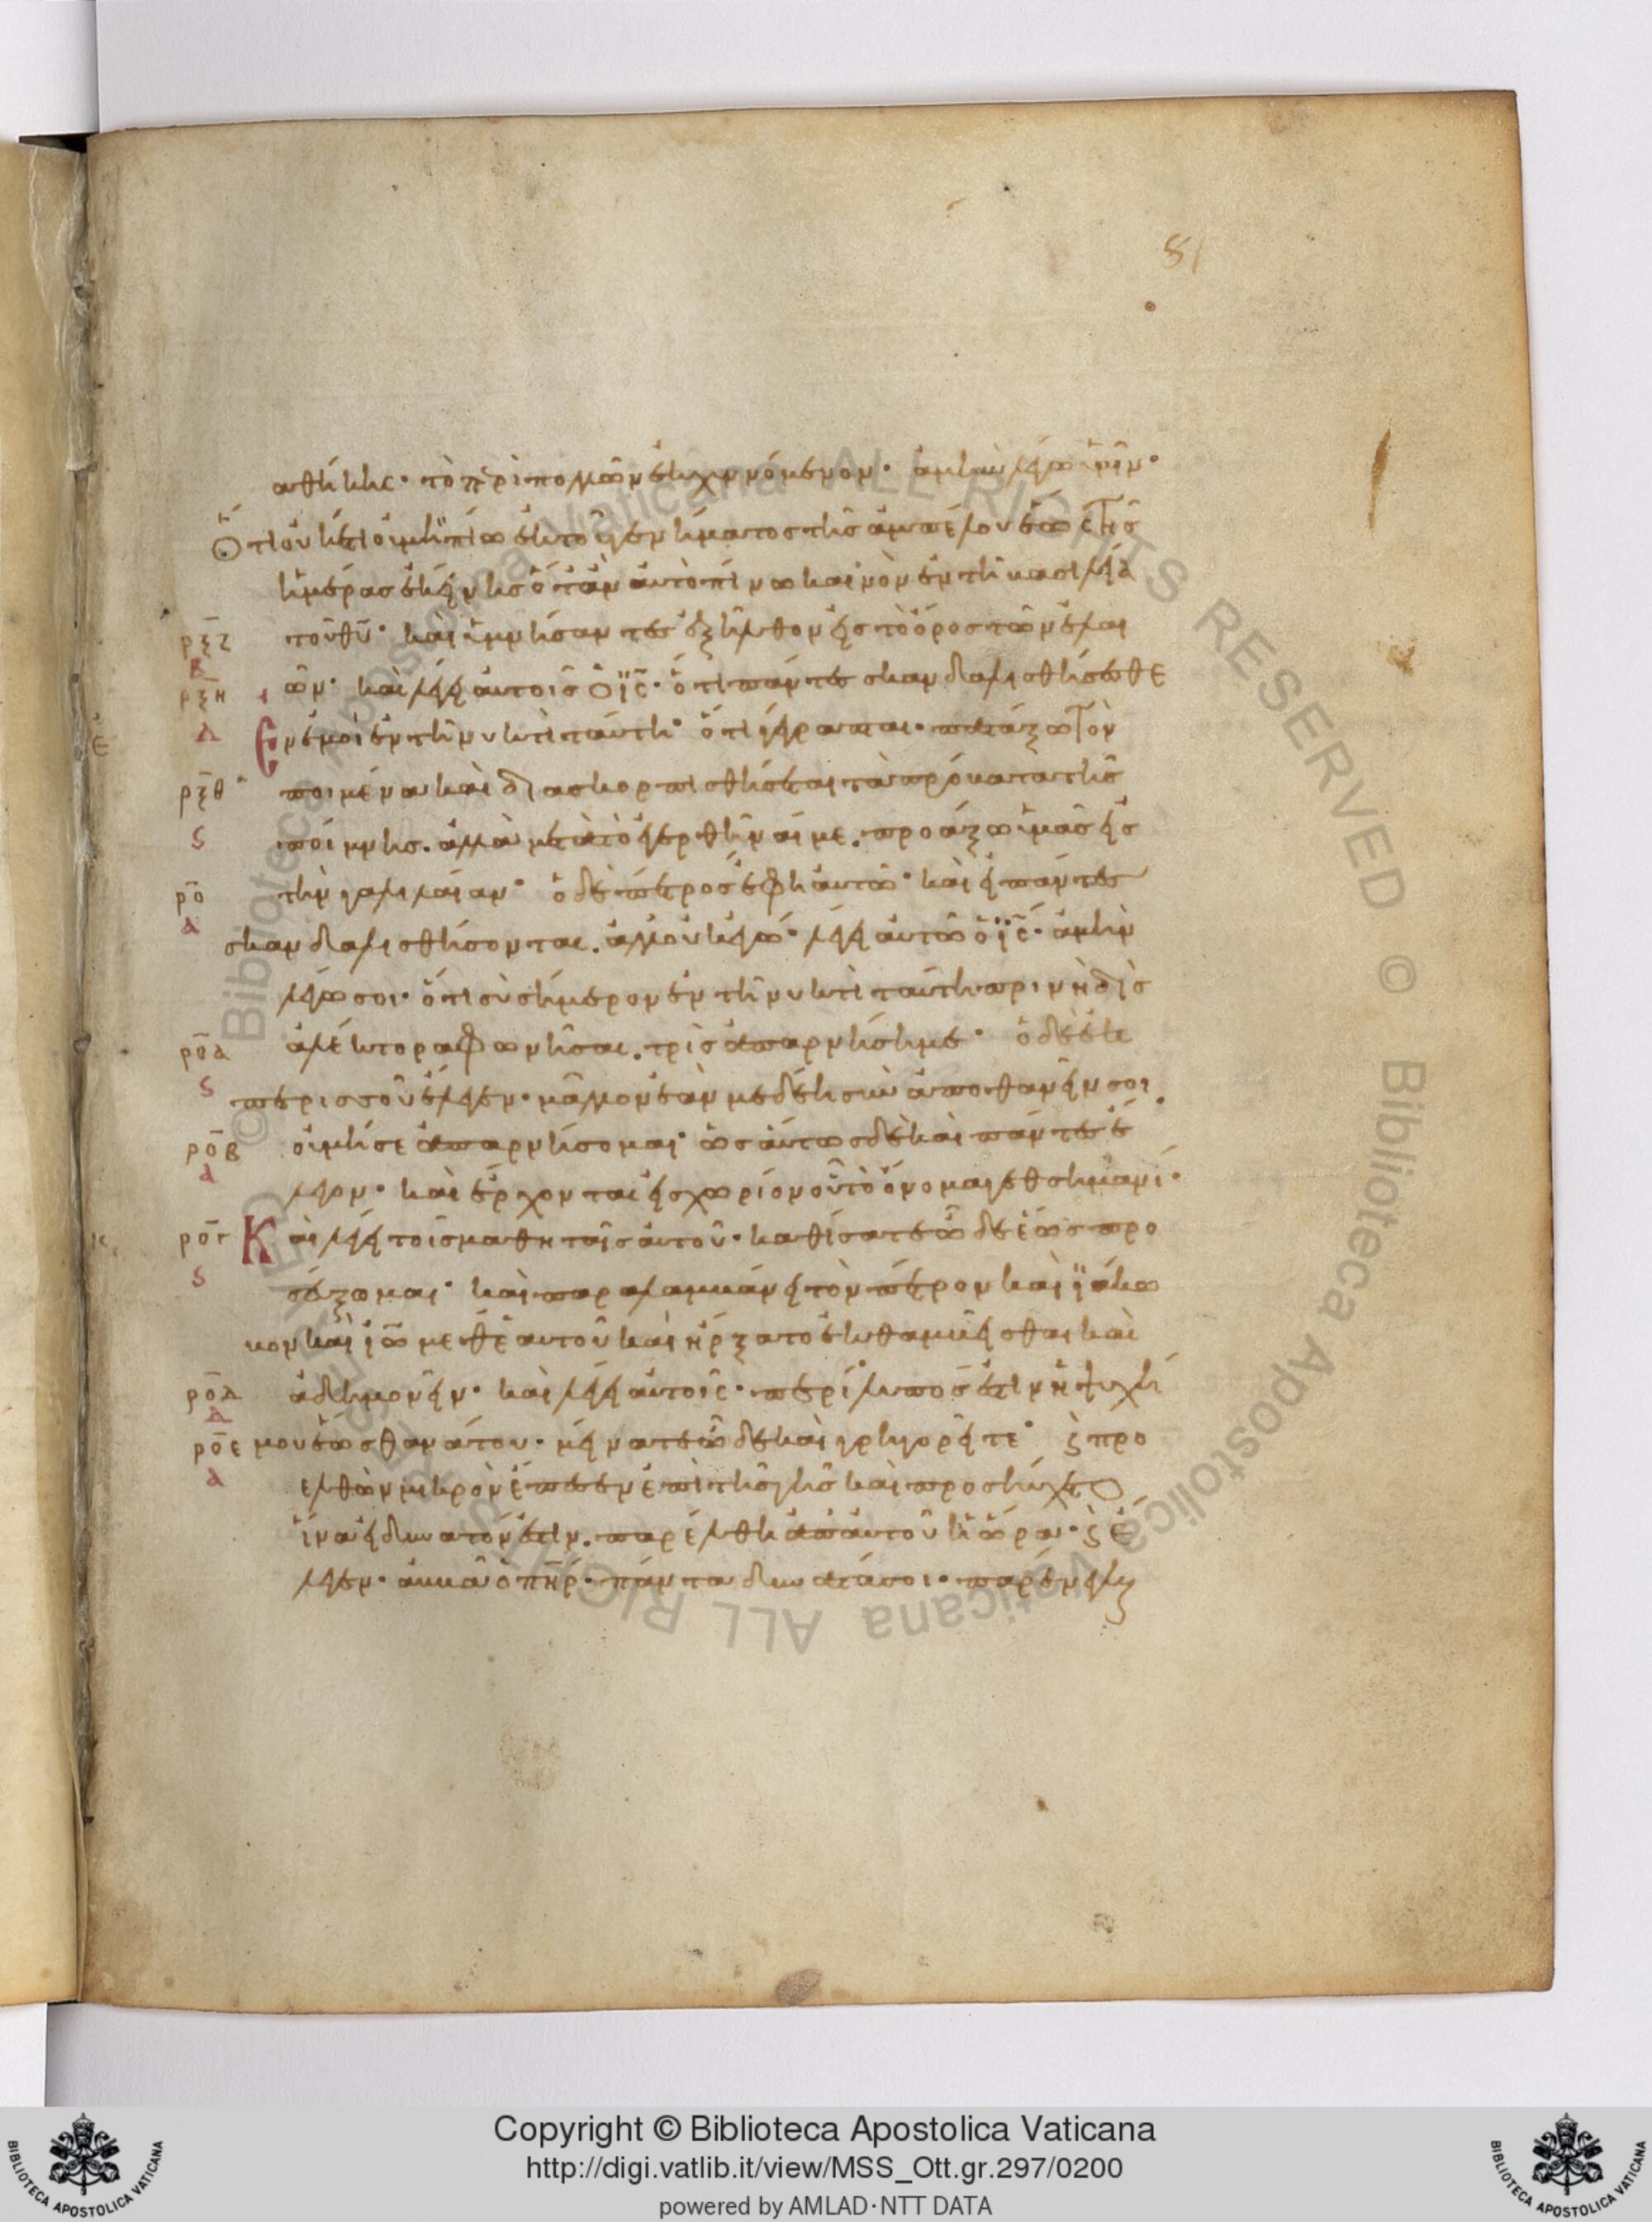 81
αθήκης· τὸ περὶ πολλῶν ἐκχυνόμενον· ἀμὴν λέγω ὑμῖν·
Ὅτι οὐκέτι οὐ μὴ πίω ἐκ τοῦ γενήματος τῆς ἀμπέλου ἕως τῆς
ἡμέρας ἐκείνης ὅταν αὐτὸ πίνω καινὸν ἐν τῆ βασιλεία
ρξζ τοῦ θυ· καὶ ὑμνήσαντες ἐξῆλθον εἰς τὸ ὄρος τῶν ἐλαι
β
ρξη ῶν· καὶ λέγει αὐτοῖς ὁ ις· ὅτι πάντες σκανδαλισθήσεσθε
δ Ἐν ἐμοὶ ἐν τῆ νυκτὶ ταύτη· ὅτι γέγραπται· πατάξω τὸν
ρξθ ποιμένα καὶ διασκορπισθήσεται τὰ πρόβατα τῆς
ϛ ποίμνης. ἀλλὰ μετὰ τὸ ἐγερθῆναί με. προάξω ὑμᾶς εἰς
ρο τὴν γαλιλαίαν· ὁ δὲ πέτρος ἔφη αὐτῶ· καὶ εἰ πάντες
α σκανδαλισθήσονται. ἀλλ οὐκ ἐγώ· λέγει αὐτῶ ὁ ις· ἀμὴν
λέγω σοι· ὅτι σὺ σήμερον ἐν τῆ νυκτὶ ταύτη πρὶν ἢ δὶς
ροα ἀλέκτορα φωνῆσαι. τρὶς ἀπαρνήση με· ὁ δὲ ἐκ
ϛ περισσοῦ ἔλεγεν· μᾶλλον ἐάν με δέη συναποθανεῖν σοι.
ροβ οὐ μή σε ἀπαρνήσομαι· ὡσαύτως δὲ καὶ πάντες ἔ
α λεγον· καὶ ἔρχονται εἰς χωρίον οὗ τὸ ὄνομα γεθσημανί·
ρογ Καὶ λέγει τοῖς μαθηταῖς αὐτοῦ· καθίσατε ὧδε ἕως προ
ϛ σεύξωμαι· καὶ παραλαμβάνει τὸν πέτρον καὶ ϊάκω
βον καὶ ιω μεθ εαυτοῦ καὶ ἤρξατο ἐκθαμβεῖσθαι καὶ
ροδ ἀδημονεῖν· καὶ λέγει αὐτοῖς· περίλυπός ἐστιν ἡ ψυχή
δ
ροε μου ἕως θανάτου· μείνατε ὧδε καὶ γρηγορεῖτε· ϛ προ
α ελθὼν μικρὸν ἔπεσεν ἐπὶ τῆς γῆς καὶ προσηύχετο
ἵνα εἰ δυνατόν ἐστιν. παρέλθη ἀπ αὐτοῦ ἡ ὥρα· ϛ ἔ
λεγεν· ἀββᾶ ὁ πηρ· πάντα δυνατά σοι· παρένεγκε
Copyright © Biblioteca Apostolica Vaticana
http://digi.vatlib.it/view/MSS_Ott.gr.297/0200
powered by AMLAD·NTT DATA
BIBLIOTECA APOSTOLICA VATICANA
BIBLIOTECA APOSTOLICA VATICANA
© Biblioteca Apostolica Vaticana ALL RIGHTS RESERVED © Biblioteca Apostolica Vaticana ALL RIGHTS RESERVED